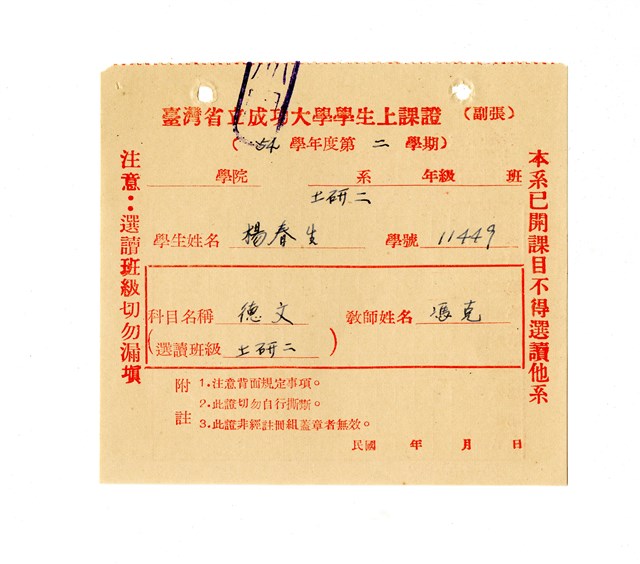 臺灣省立成功大學學生上課證（副張）
（54學年度第二學期）
學院 系 年級 班
土研二
學生姓名 楊春生 學號 11449
科目名稱 德文 教師姓名 馮克
（選讀班級 土研二）
附註
1.注意背面規定事項。
2.此證切勿自行撕斷。
3.此證非經註冊組蓋章者無效。
民國 年 月 日
本系已開課目不得選讀他系
注意：選讀班級切勿漏填